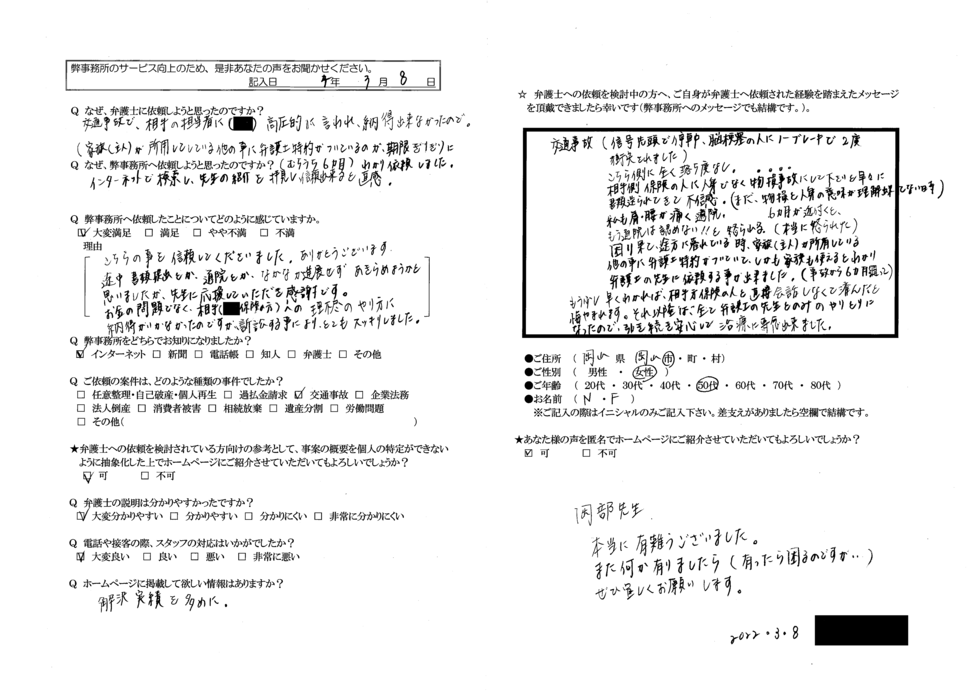 弊事務所のサービス向上のため、是非あなたの声をお聞かせください。
記入日 4年 3月 8日
Q なぜ、弁護士に依頼しようと思ったのですか?
交通事故で、相手の担当者に( )高圧的に言われ、納得出来なかったので。
(家族(主人)が所用としている他の車に弁護士特約がついているのが、期限ぎりぎりに
Q なぜ、弊事務所へ依頼しようと思ったのですか?(むちうち6カ月)わかり依頼しました。
インターネットで検索し、先生の紹介を拝見し信頼出来ると直感。
Q 弊事務所へ依頼したことについてどのように感じていますか。
☑ 大変満足 □ 満足 □ やや不満 □ 不満
理由
こちらの事を信頼してくださいました。ありがとうございます。
途中書類提出とか、通院とか、なかなか進展せず あきらめようかと
思いましたが、先生に応援していただき感謝です。
お金の問題でなく、相手( 保険の方)人の 理不尽のやり方に
納得がいかなかったのですが、訴訟する事により、とてもスッキリしました。
Q 弊事務所をどちらでお知りになりましたか?
☑ インターネット □ 新聞 □ 電話帳 □ 知人 □ 弁護士 □ その他
Q ご依頼の案件は、どのような種類の事件でしたか?
□ 任意整理・自己破産・個人再生 □ 過払金請求 ☑ 交通事故 □ 企業法務
□ 法人倒産 □ 消費者被害 □ 相続放棄 □ 遺産分割 □ 労働問題
□ その他( )
★弁護士への依頼を検討されている方向けの参考として、事案の概要を個人の特定ができない
ように抽象化した上でホームページにご紹介させていただいてもよろしいでしょうか?
☑ 可 □ 不可
Q 弁護士の説明は分かりやすかったですか?
☑ 大変分かりやすい □ 分かりやすい □ 分かりにくい □ 非常に分かりにくい
Q 電話や接客の際、スタッフの対応はいかがでしたか?
☑ 大変良い □ 良い □ 悪い □ 非常に悪い
Q ホームページに掲載して欲しい情報はありますか?
解決実績を多めに。
☆ 弁護士への依頼を検討中の方へ、ご自身が弁護士へ依頼された経験を踏まえたメッセージ
を頂戴できましたら幸いです(弊事務所へのメッセージでも結構です。)。
交通事故(信号先頭で停車中、脳梗塞の人にノーブレーキで2度
衝突されました)
こちら側に全く落ち度なし。
相手側保険の人に人身でなく物損事故にして下さいと早々に
書類送られてきて不信感。(まだ、物損と人身の意味が理解出来てない時)
私も肩・腰が痛く通院。 6カ月が近付くと、
もう通院は認めない!!と怒られる(本当に怒られた)
困り果て、途方に暮れている時、家族(主人)が所用している
他の車に弁護士特約がついていて、しかも家族も使えるとわかり
弁護士の先生に依頼する事が出来ました。(事故から6カ月
もう少し早くわかれば、相手方保険の人と直接会話しなくて済んだと
悔やまれます。それ以降は、全て弁護士の先生とのみのやりとりに
なったので、手続きも安心して治療に専念出来ました。
●ご住所 ( 岡山 県 岡山 市・町・村)
●ご性別 ( 男性 ・ 女性 )
●ご年齢 ( 20代 ・ 30代 ・ 40代 ・ 50代 ・ 60代 ・ 70代 ・ 80代 )
●お名前 ( N ・ F )
※ご記入の際はイニシャルのみご記入下さい。差支えがありましたら空欄で結構です。
★あなた様の声を匿名でホームページにご紹介させていただいてもよろしいでしょうか?
☑ 可 □ 不可
岡部先生
本当に有難うございました。
また何か有りましたら(有ったら困るのですが…)
ぜひ宜しくお願いします。
2022・3・8